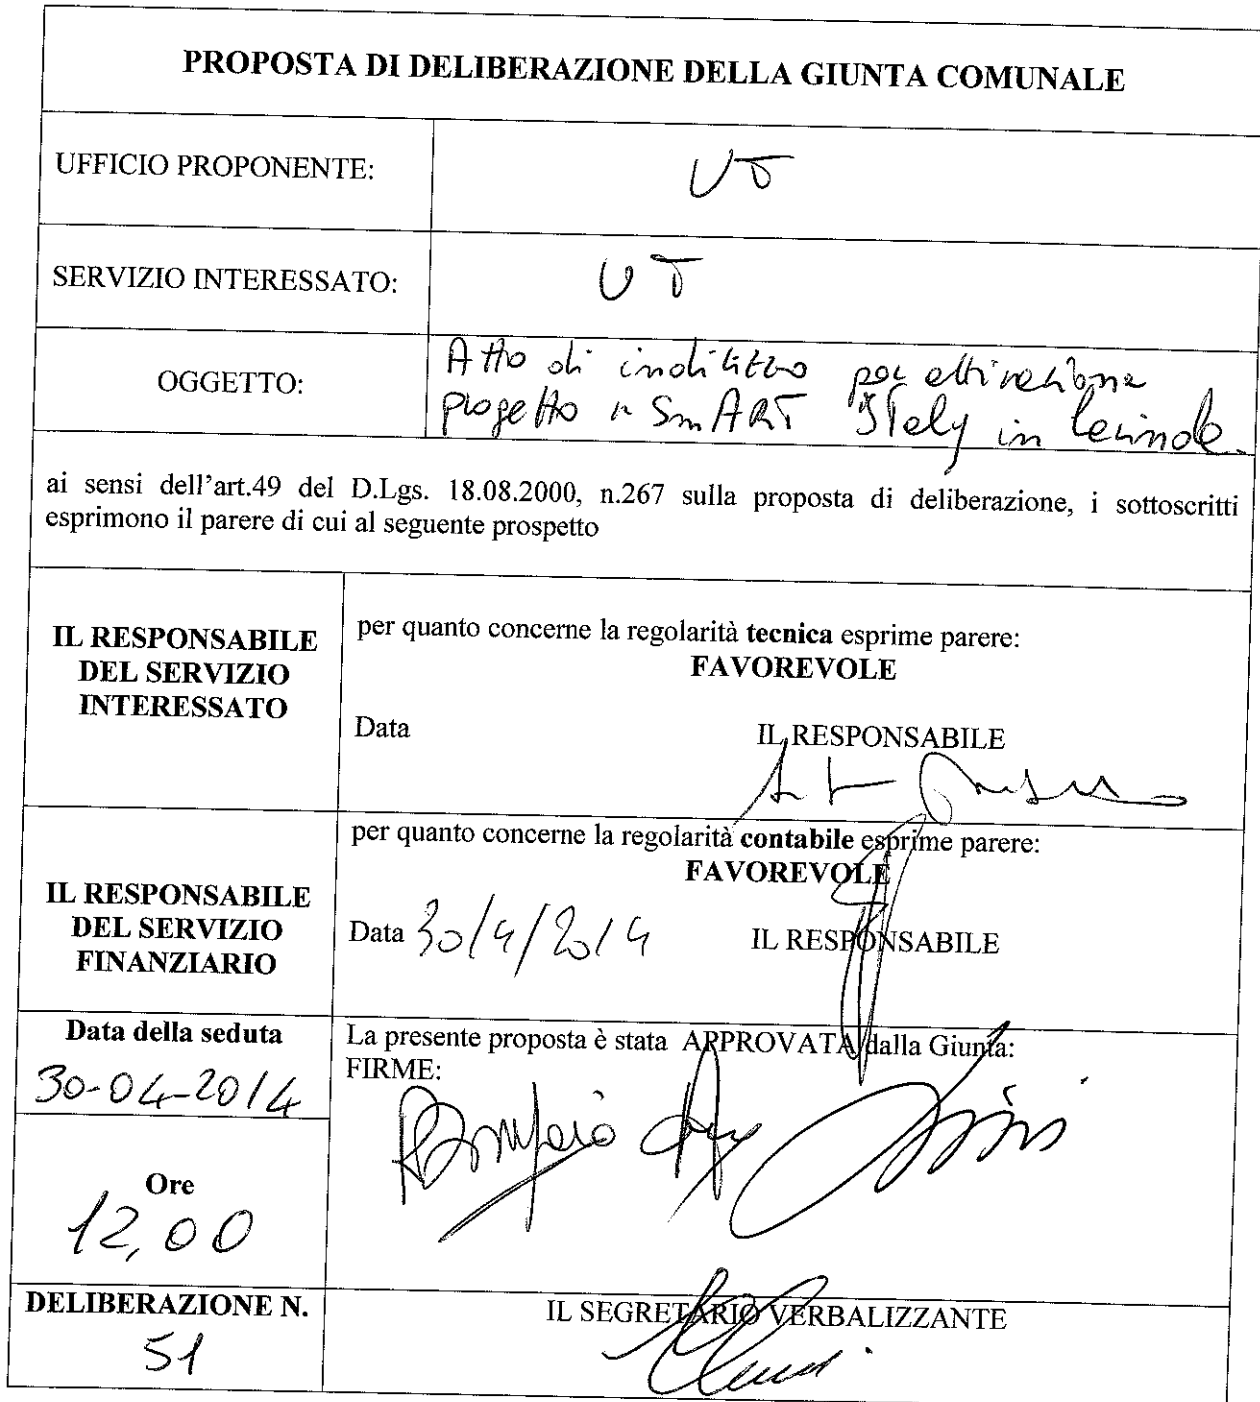 PROPOSTA DI DELIBERAZIONE DELLA GIUNTA COMUNALE
UFFICIO PROPONENTE: UT
SERVIZIO INTERESSATO: UT
OGGETTO: Atto di indirizzo per attivazione
progetto "SmART Italy in
ai sensi dell'art.49 del D.Lgs. 18.08.2000, n.267 sulla proposta di deliberazione, i sottoscritti
esprimono il parere di cui al seguente prospetto
IL RESPONSABILE
DEL SERVIZIO
INTERESSATO
per quanto concerne la regolarità tecnica esprime parere:
FAVOREVOLE
Data IL RESPONSABILE
IL RESPONSABILE
DEL SERVIZIO
FINANZIARIO
per quanto concerne la regolarità contabile esprime parere:
FAVOREVOLE
Data 30/4/2014 IL RESPONSABILE
Data della seduta
30-04-2014
La presente proposta è stata APPROVATA dalla Giunta:
FIRME:
Ore
12,00
DELIBERAZIONE N.
51
IL SEGRETARIO VERBALIZZANTE